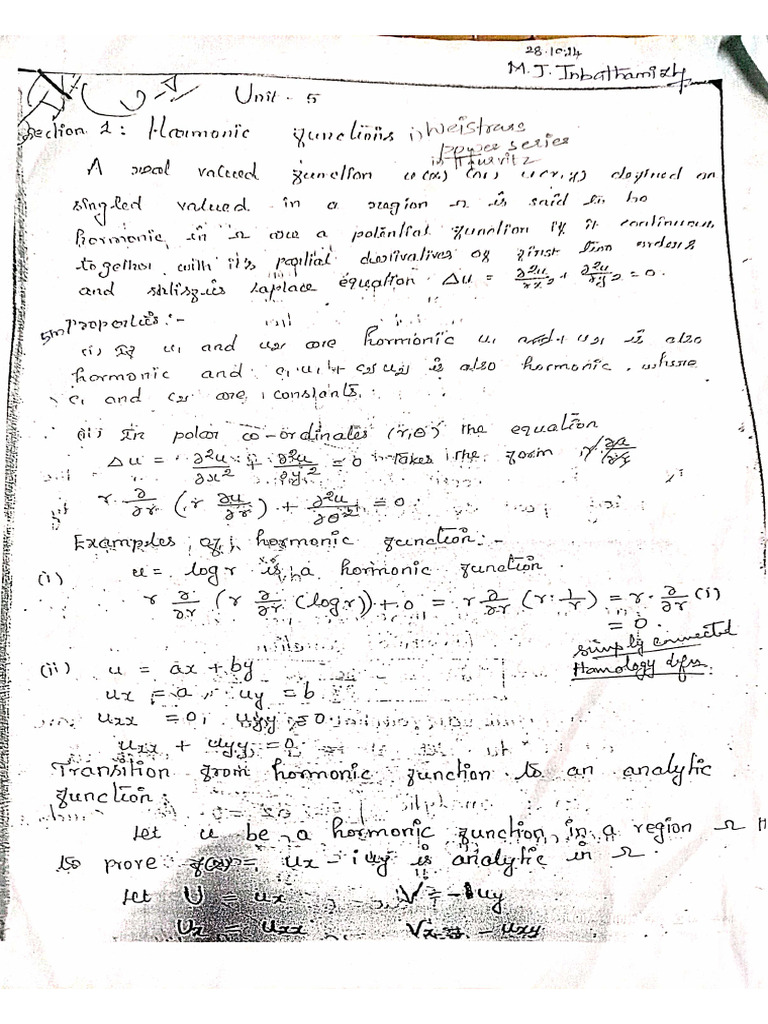 28.10.14
M.J. Inbathamizh
Unit - 5
Section 1: Harmonic functions i) Weistrass
power series
ii) Hurvitz
A real valued function u(z) (or) u(x,y) defined on
singled valued in a region Ω is said to be
harmonic in Ω are a potential function if it continuous
together with it's partial derivatives of first two orders
and satisfies laplace equation Δu = ∂²u/∂x² + ∂²u/∂y² = 0.
5m Properties :-
(i) If u₁ and u₂ are hormonic u₁ + u₂ is also
hormonic and c₁u₁ + c₂u₂ is also hormonic, where
c₁ and c₂ are constants.
(ii) In polar co-ordinates (r,θ) the equation
Δu = ∂²u/∂x² + ∂²u/∂y² = 0 takes the form
r · ∂/∂r (r ∂u/∂r) + ∂²u/∂θ² = 0.
Examples of hormonic function :-
(i) u = log r is a hormonic function.
r ∂/∂r (r ∂/∂r (log r)) + 0 = r ∂/∂r (r · 1/r) = r · ∂/∂r (1)
= 0.
simply connected
Homology defn.
(ii) u = ax + by
ux = a, uy = b
uxx = 0; uyy = 0
uxx + uyy = 0.
Transition from hormonic function to an analytic
function:
Let u be a hormonic function in a region Ω
to prove f(z) = ux - iuy is analytic in Ω.
Let U = ux, V = -uy
Ux = uxx Vx = - uxy